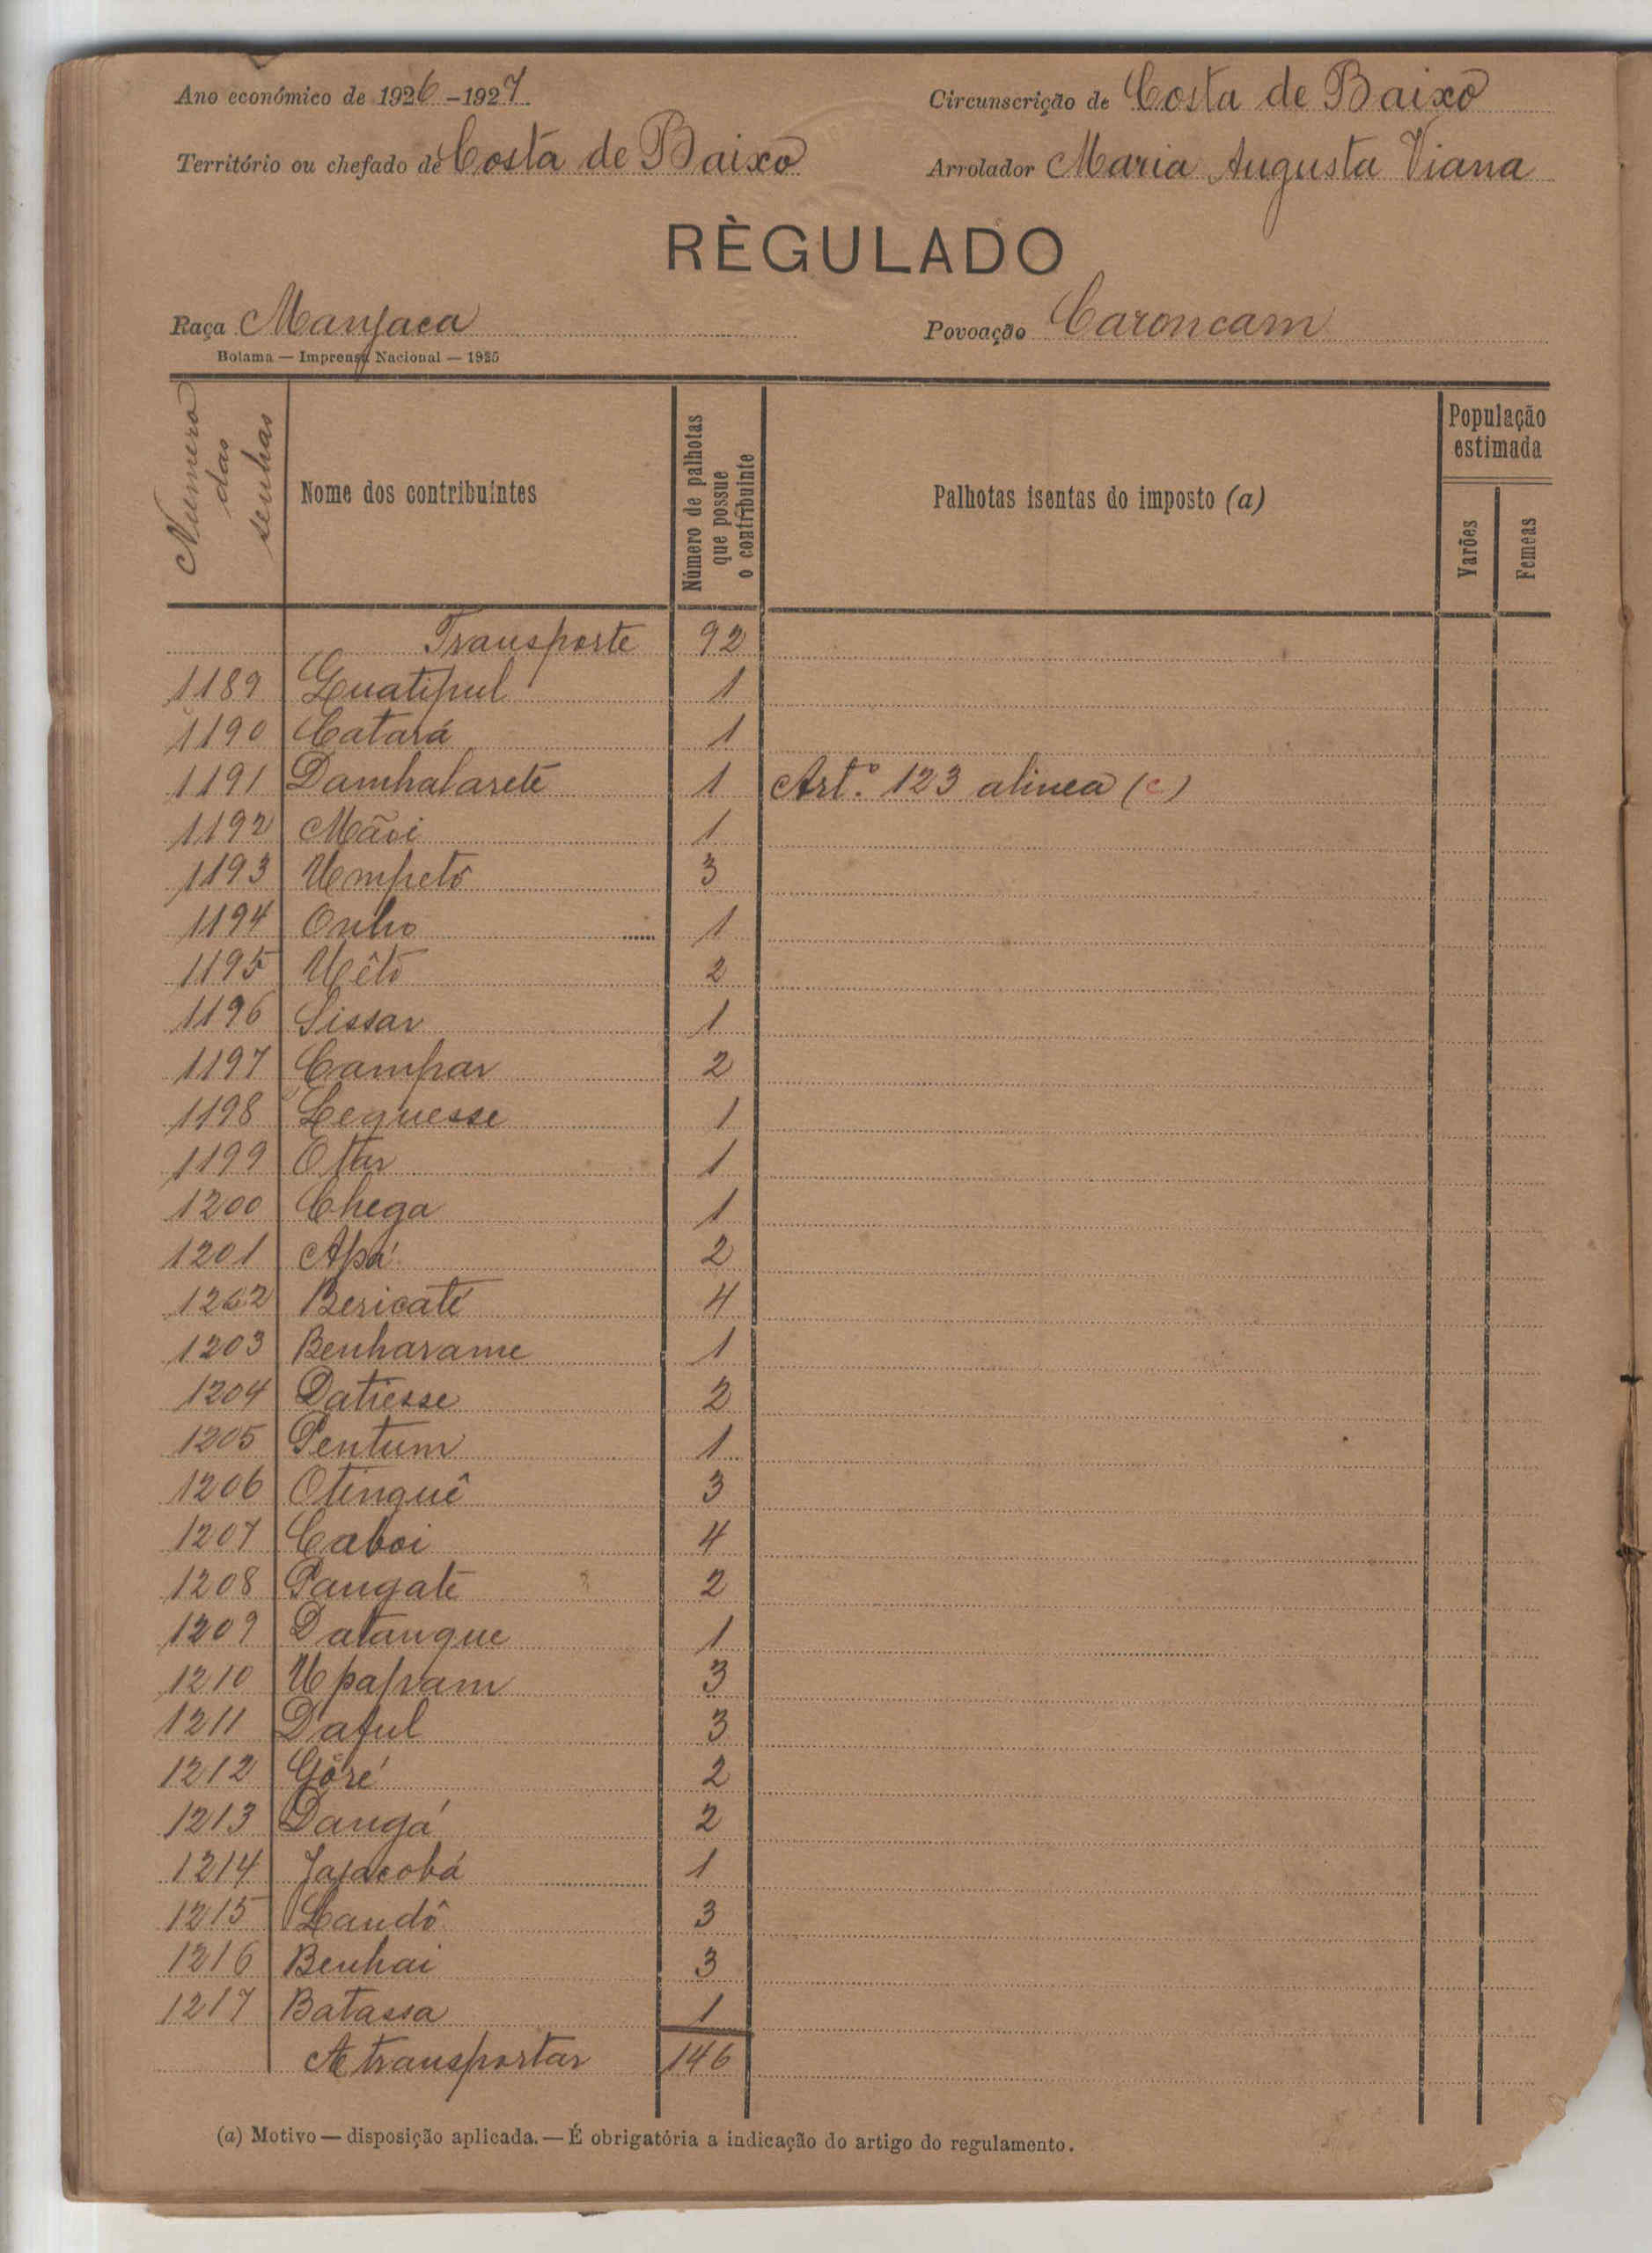 Ano económico de 1926-1927 Circunscrição de Costa de Baixo
Território ou chefado de Costa de Baixo Arrolador Maria Augusta Viana
RÈGULADO
Raça Manjaca Povoação Caroncam
Bolama — Imprensa Nacional — 1925
Numero das senhas
Nome dos contribuintes
Número de palhotas que possue o contribuinte
Palhotas isentas do imposto (a)
População estimada
Varões
Femeas
Transporte 92
1189 Guatipul 1
1190 Catará 1
1191 Dambalareté 1 Artº. 123 alinea (c)
1192 Mãoi 1
1193 Umpetô 3
1194 Onho 1
1195 Uêtô 2
1196 Sissar 1
1197 Campar 2
1198 Leguesse 1
1199 Ofar 1
1200 Chega 1
1201 Apá 2
1202 Bericaté 4
1203 Benharame 1
1204 Datiesse 2
1205 Pentum 1
1206 Otinguê 3
1207 Caboi 4
1208 Pangaté 2
1209 Datangue 1
1210 Upapram 3
1211 Daful 3
1212 Gôré 2
1213 Dangá 2
1214 Jajacobá 1
1215 Landô 3
1216 Benhai 3
1217 Batassa 1
A transportar 146
(a) Motivo — disposição aplicada. — É obrigatória a indicação do artigo do regulamento.